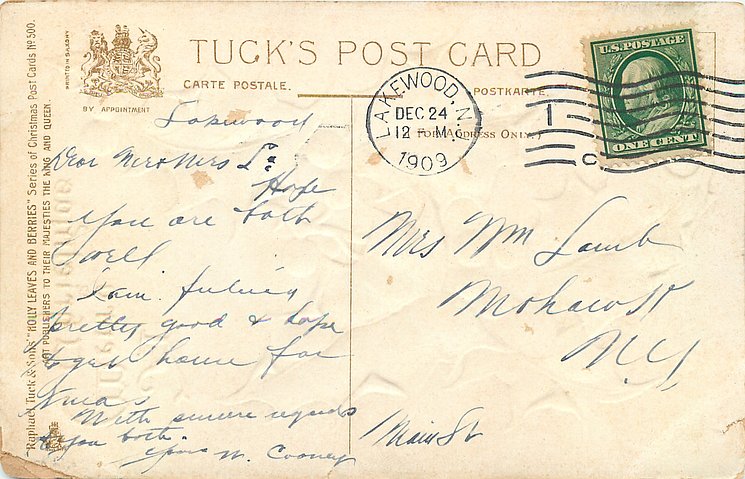 PRINTED IN SAXONY
BY APPOINTMENT
TUCK'S POST CARD
CARTE POSTALE.
POSTKARTE.
(FOR ADDRESS ONLY.)
Raphael Tuck & Sons' "HOLLY LEAVES AND BERRIES" Series of Christmas Post Cards No 500.
ART PUBLISHERS TO THEIR MAJESTIES THE KING AND QUEEN.
LAKEWOOD, N.J.
DEC 24
12 M.
1909
1
C
U.S. POSTAGE
ONE CENT
Lakewood
Dear Mr & Mrs L.
Hope
you are both
well
I am feeling
pretty good & hope
to get home for
Xmas
With sincere regards
to you both.
Yours W. Cooney
Mrs Wm Lamb
Mohawk
N.Y.
Main St